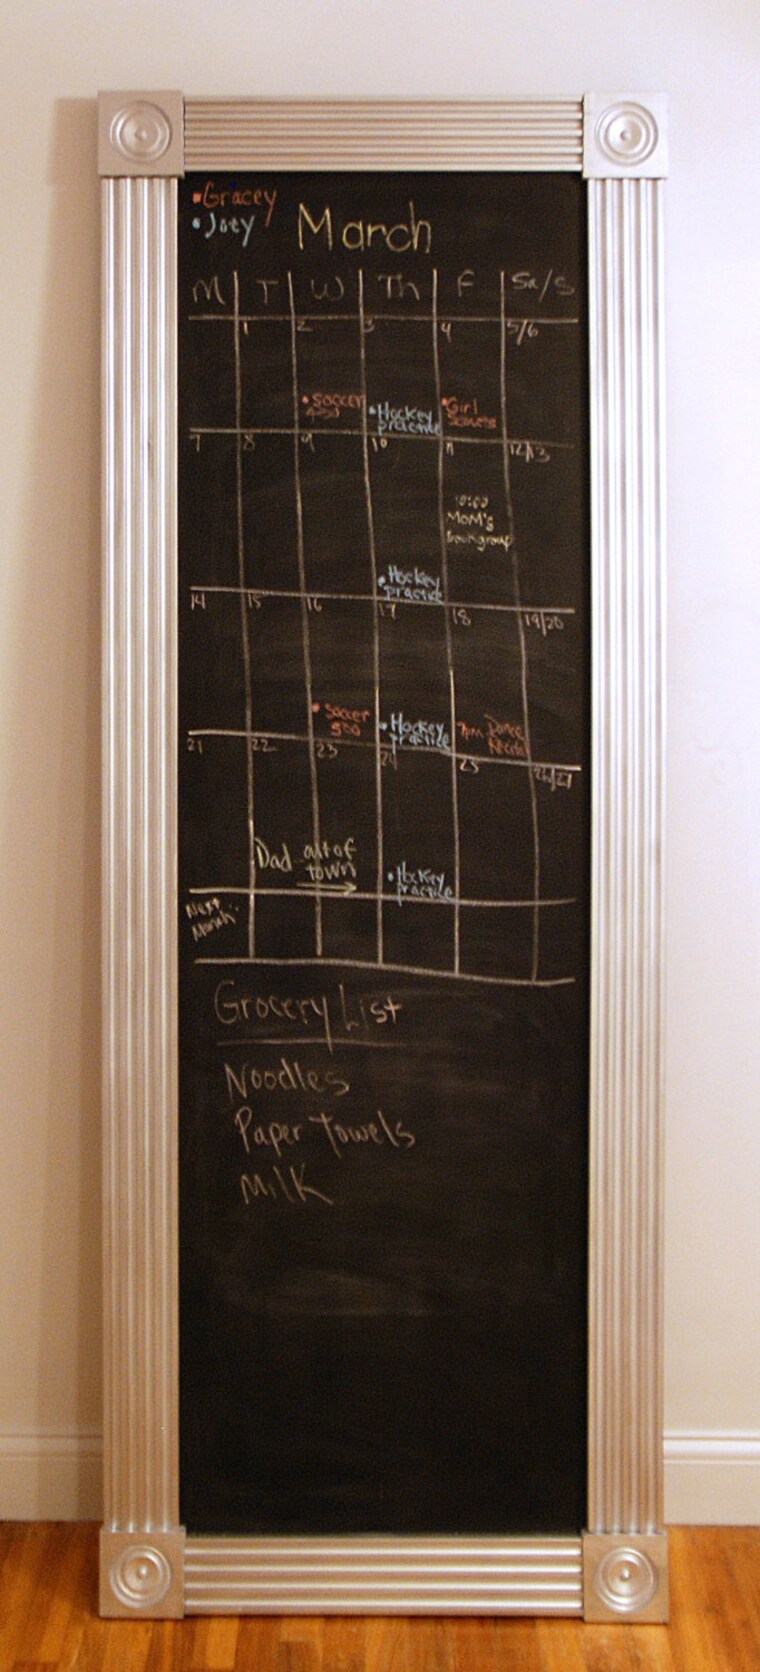 •Gracey
•Joey
March
M T W Th F Sa/S
1 2 3 4 5/6
•Soccer
•Hockey
practice
•Girl
Scouts
7 8 9 10 11 12/13
10:00
MOM's
•Hockey
practice
14 15 16 17 18 19/20
•Soccer
500
•Hockey
practice
7pm Dance
Recital
21 22 23 24 25 26/27
Dad out of
town
•Hockey
practice
Next
Grocery List
Noodles
Paper Towels
Milk